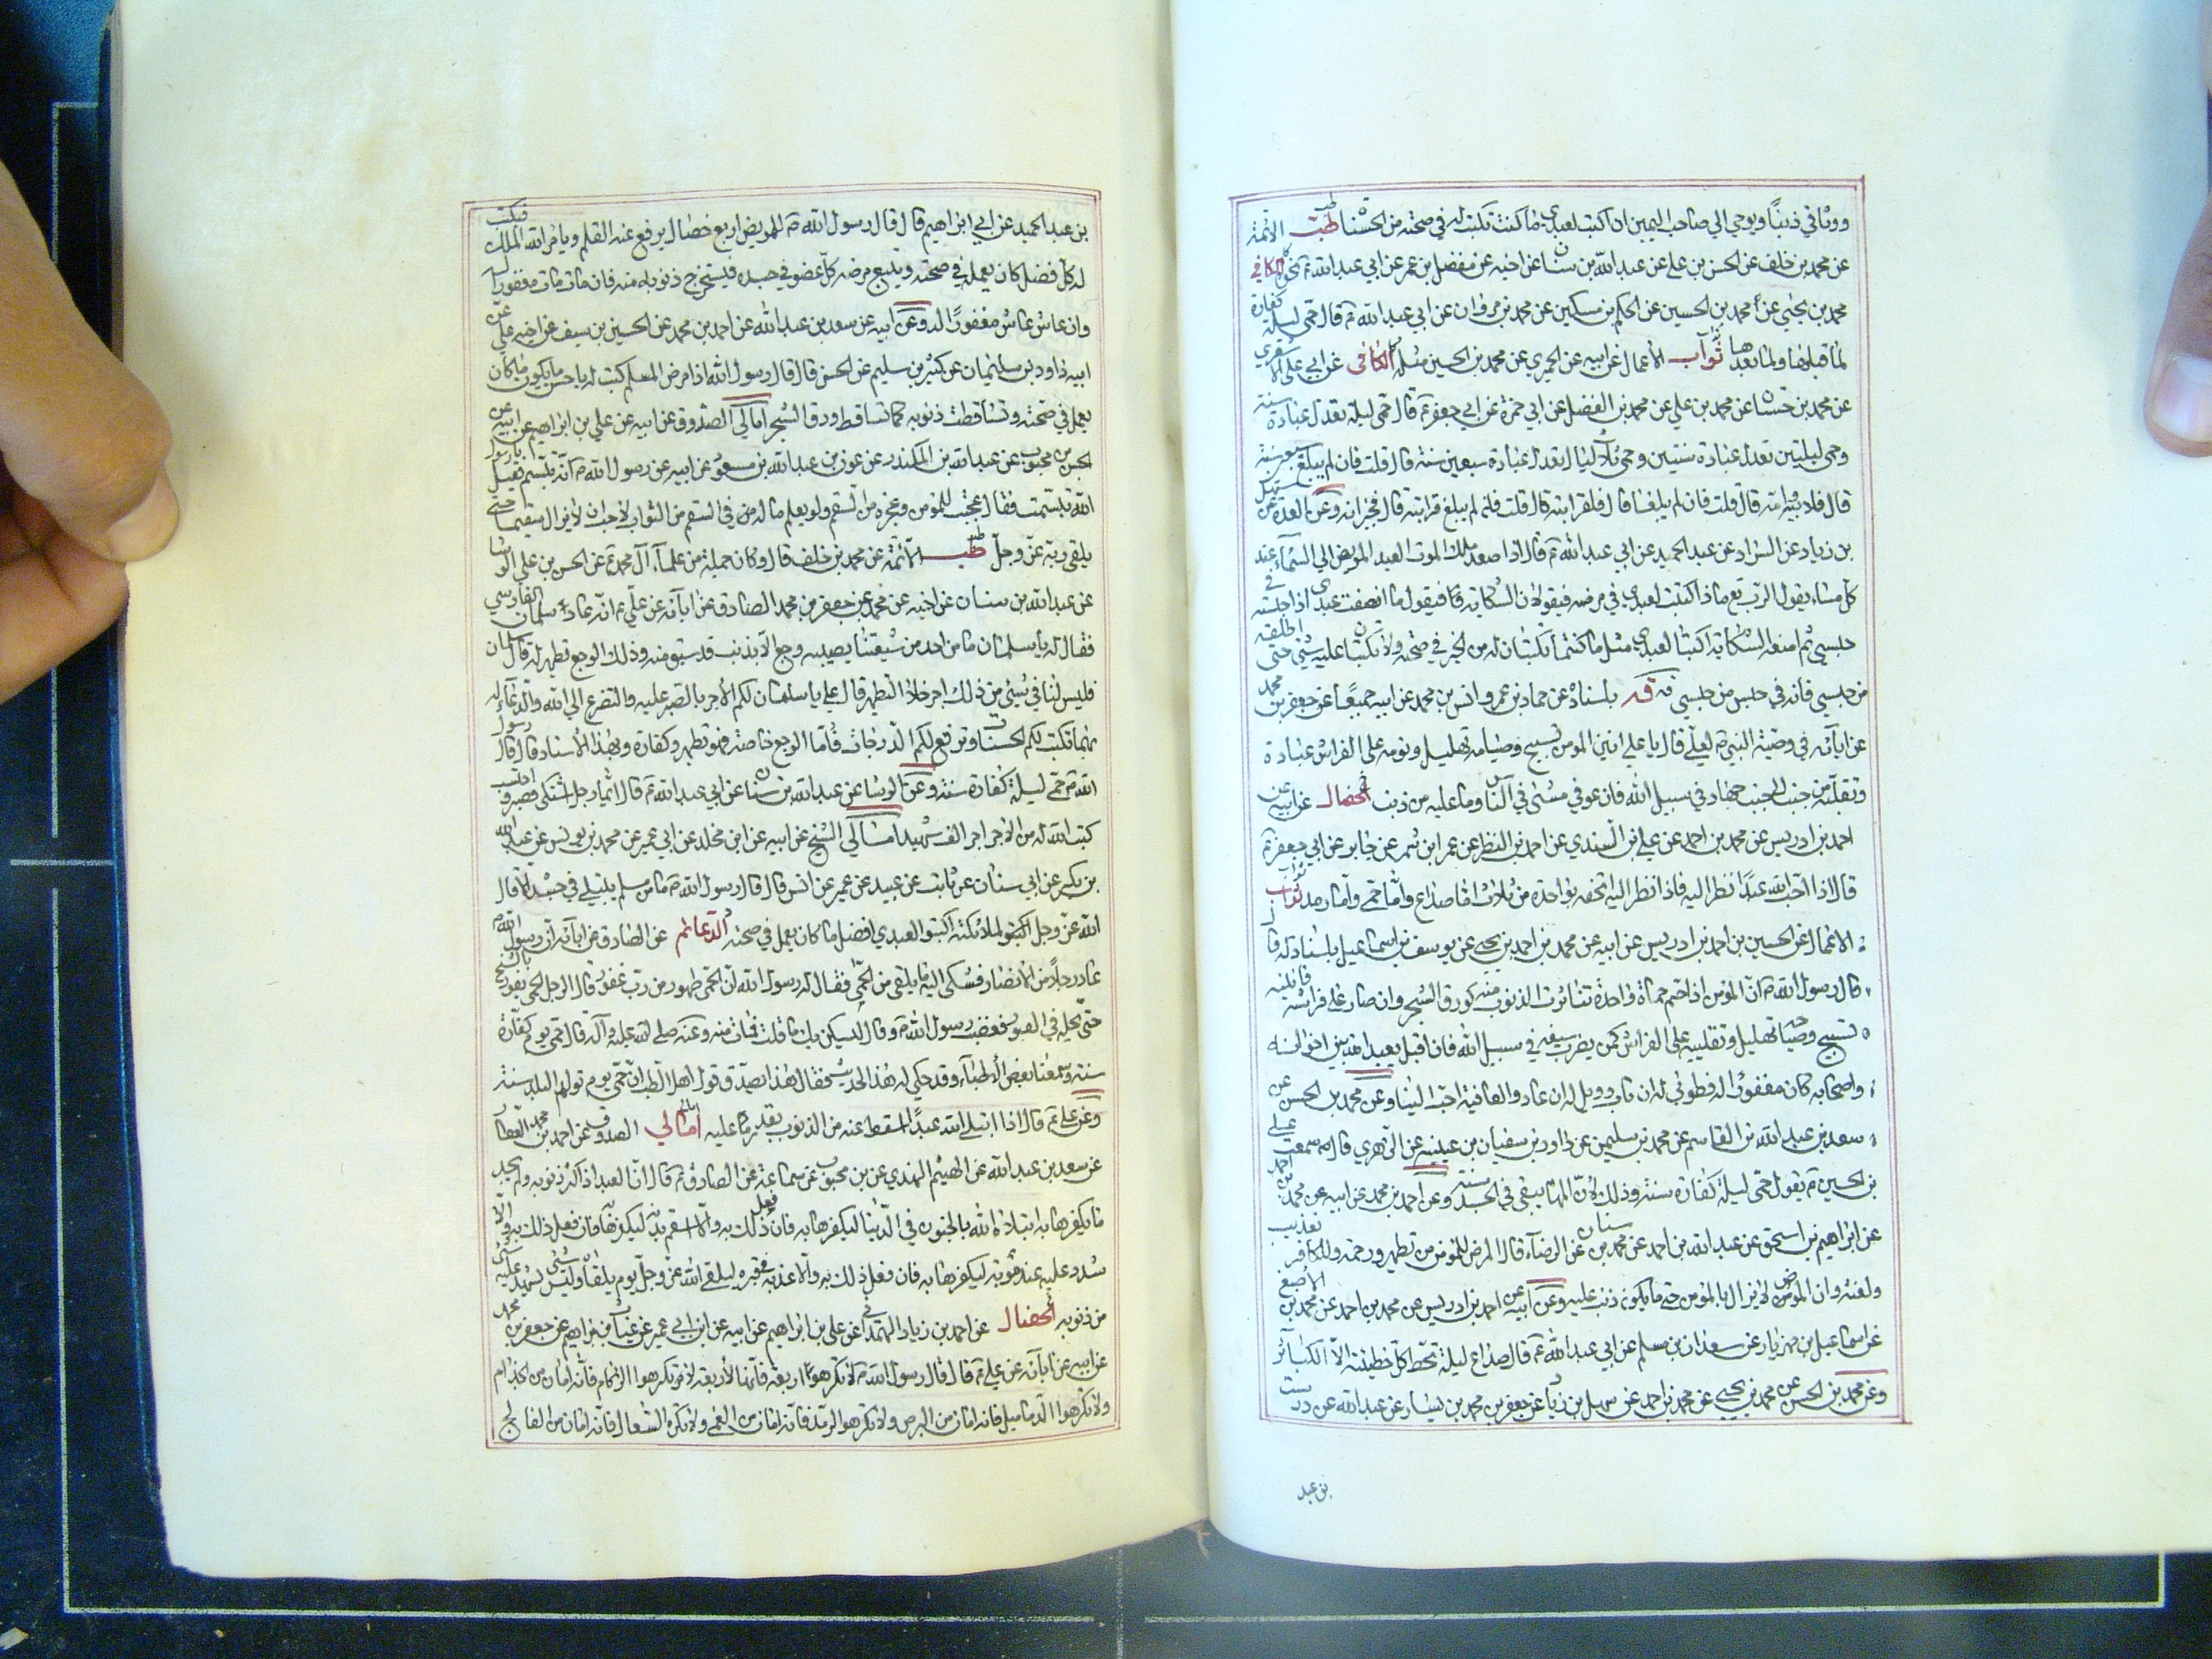 ووثاقي ذنباً ويوحي الي صاحب اليمين ان اكتب لعبدي ما كنت تكتب له في صحته من الحسنات طب الائمة
عن محمد بن خلف عن الحسن بن علي عن عبد الله بن سنان عن اخيه عن مفضل بن عمر عن ابي عبد الله ع نحوه الكافي
محمد بن يحيى عن محمد بن الحسين عن الحكم بن مسكين عن محمد بن مروان عن ابي عبد الله ع قال حمى ليلة كفارة
لما قبلها ولما بعدها ثواب الاعمال عن ابيه عن الحميري عن محمد بن الحسين مثله الكافي عن ابي علي الاشعري
عن محمد بن حسان عن محمد بن علي عن محمد بن الفضيل عن ابي حمزة عن ابي جعفر ع قال حمى ليلة تعدل عبادة سنة
وحمى ليلتين تعدل عبادة سنتين وحمى ثلاث ليال تعدل عبادة سبعين سنة قال قلت فان لم يبلغ سبعين سنة
قال فلابيه وامه قال قلت فان لم يبلغا قال فلقرابته قال قلت فان لم يبلغ قرابته قال فجيرانه وعن العدة عن سهل
بن زياد عن السراد عن عبد الحميد عن ابي عبد الله ع قال اذا صعد ملك الموت العبد المريض الي السماء عند
كل مساء يقول الرب تع ماذا كتبت لعبدي في مرضه فيقولان الشكاية فيقول ما انصفت عبدي اذا حبسته في
حبسي ثم امنعه الشكاية اكتبا لعبدي مثل ما كنتما تكتبان له من الخير في صحته ولا تكتبا عليه شيئ حتى اطلقه
من حبسي فانه في حبس من حبسي يه باسناده عن حماد بن عمرو وانس بن محمد عن ابيه جميعاً عن جعفر بن محمد
عن ابائه في وصية النبي ص لعلي قال يا علي انين المومن تسبيح وصياحه تهليل ونومه على الفراش عبادة
وتقلبه من جنب الي جنب جهاد في سبيل الله فان عوفي مشى في الناس وما عليه من ذنب الخصال عن ابيه عن
احمد بن ادريس عن محمد بن احمد عن علي بن السندي عن احمد بن النضر عن عمرو بن شمر عن جابر عن ابي جعفر ع
قال اذا احب الله عبداً نظر اليه فاذا نظر اليه اتحفه بواحدة من ثلاث اما صداع واما حمى واما رمد ثواب
الاعمال عن الحسين بن احمد بن ادريس عن ابيه عن محمد بن احمد بن يحيى عن يوسف بن اسماعيل باسناد له قال
قال رسول الله ص ان المؤمن اذا حم حماة واحدة تناثرت الذنوب منه كورق الشجر وان صار على فراشه فانينه
تسبيح وصياحه تهليل وتقلبه على الفراش كمن يضرب بسيفه في سبيل الله فان اقبل يعبد الله بين اخوانه
واصحابه كان مغفوراً له فطوبى له ان تاب وويل له ان عاد والعافية احب الينا وعن محمد بن الحسن عن
سعد بن عبد الله عن القاسم بن محمد عن سليمن عن داود بن سفيان بن عيينه عن الزهري قال سمعت علي
بن الحسين ع يقول حمى ليلة كفارة سنة وذلك لان المها يبقى في الجسد سنة وعن احمد بن محمد عن ابيه عن محمد بن احمد
عن ابراهيم بن اسحق عن عبد الله بن احمد عن محمد بن سنان عن الرضا ع قال المرض للمؤمن تطهير ورحمة وللكافر تعذيب
ولعنة وان المرض لا يزال بالمؤمن حتى ما يكون ذنب عليه وعن ابيه عن احمد بن ادريس عن محمد بن احمد عن محمد بن الاصبغ
عن اسماعيل بن مهزيار عن سعدان بن مسلم عن ابي عبد الله ع قال صداع ليلة تحط كل خطيئة الا الكبائر
وعن محمد بن الحسن عن محمد بن يحيى عن محمد بن احمد عن سهل بن زياد عن جعفر بن محمد بن بشار عن عبد الله عن درست
بن عبد
بن عبد الحميد عن ابي ابراهيم قال قال رسول الله ص للمريض اربع خصال يرفع عنه القلم ويامر الله الملك فيكتب
له كل فضل كان يعمله في صحته ويتبع مرضه كل عضو في جسده فيستخرج ذنوبه منه فان مات مات مغفوراً له
وان عاش عاش مغفوراً له وعن ابيه عن سعد بن عبد الله عن احمد بن محمد عن الحسين بن سيف عن اخيه علي عن
ابيه داود بن سليمان عن كثير بن سليم عن الحسن قال قال رسول الله اذا مرض المسلم كتب له باحسن ما يكون ما كان
يعمل في صحته وتساقطت ذنوبه كما تساقط ورق الشجر امالي الصدوق عن ابيه عن علي بن ابراهيم عن ابيه عن
الحسن بن محبوب عن عبد الله بن المكندر عن عوز بن عبد الله بن مسعود عن ابيه عن رسول الله ص انه تبسم فقيل يا رسول
الله تبسمت فقال عجبت للمؤمن وجزعه من السقم ولو يعلم ما له من في السقم من الثواب لاحب ان لا يزال سقيما حتى
يلقى ربه عز وجل طب الائمة عن محمد بن خلف قال وكان جملية من علماء آل محمد ع عن الحسن بن علي الوشا
عن عبد الله بن سنان عن اخيه عن محمد عن جعفر بن محمد الصادق عن ابائه عن علي ع انه عاد سلمان الفارسي
فقال له يا سلمان ما من احد من شيعتنا يصيبه وجع الا بذنب قد سبق منه وذلك الوجع تطهير له قال سلمان
فليس لنا في شيئ من ذلك اجر خلا التطهير قال علي يا سلمان لكم الاجر بالصبر عليه والتضرع الي الله والدعاء له
بهما تكتب لكم الحسنات وترفع لكم الدرجات فاما الوجع خاصة فهو تطهير وكفارة وبهذا الاسناد قال قال رسول
الله ص حمى ليلة كفارة سنة وعن الوشا عن عبد الله بن سنان عن ابي عبد الله ع قال ايما رجل اشتكى فصبر واحتسب
كتب الله له من الاجر اجر الف شهيد امالي الشيخ عن ابيه عن ابن مخلد عن ابي عمير عن محمد بن يونس عن عبد الله
بن بكير عن ابي سنان عن ثابت عن عبيد عن عمير عن انس قال قال رسول الله ص ما من مسلم يبتلي في جسده الا قال
الله عز وجل لملائكته اكتبوا لعبدي افضل ما كان يعمل في صحته الدعائم عن الصادق عن ابائه ان رسول الله ص
عاد رجلاً من الانصار فشكى اليه ما يلقى من الحمى فقال له رسول الله ان الحمى طهور من رب غفور قال الرجل الحمى يفور بالشيخ
حتى تحله في القبور فغضب رسول الله ص وقال ليكن بك ما قلت فمات منه وعنه صلى الله عليه وآله قال حمى يوم كفارة
سنة وسمعنا بعض الاطباء وقد حكي له هذا الحديث فقال هذا تصديق قول اهل الطب ان حمى يوم تولم البدن سنة
وعن علي ع قال اذا ابتلى الله عبداً اسقط عنه من الذنوب بقدر ما عليه امالي الصدوق عن احمد بن محمد العطار
عن سعد بن عبد الله عن الهيثم النهدي عن بن محبوب عن سماعة عن الصادق ع قال ان العبد اذا كثر ذنوبه ولم يجد
ما يكفرها به ابتلاه الله بالحزن في الدنيا ليكفرها به فان فعل ذلك به والا اسقم بدنه ليكفرها به فان فعل ذلك به والا
شدد عليه عند موته ليكفرها به فان فعل ذلك به والا عذبه في قبره ليلقى الله عز وجل يوم يلقاه وليس شئ يشهد عليه بشئ
من ذنوبه الخصال عن احمد بن زياد الهمداني عن علي بن ابراهيم عن ابيه عن ابن ابي عمير عن غياث بن ابراهيم عن جعفر بن محمد
عن ابيه عن ابائه عن علي ع قال قال رسول الله ص لا تكرهوا اربعة فانها لاربعة لا تكرهوا الزكام فانه امان من الجذام
ولا تكرهوا الدماميل فانه امان من البرص ولا تكرهوا الرمد فانه امان من العمى ولا تكره السعال فانه امان من الفالج